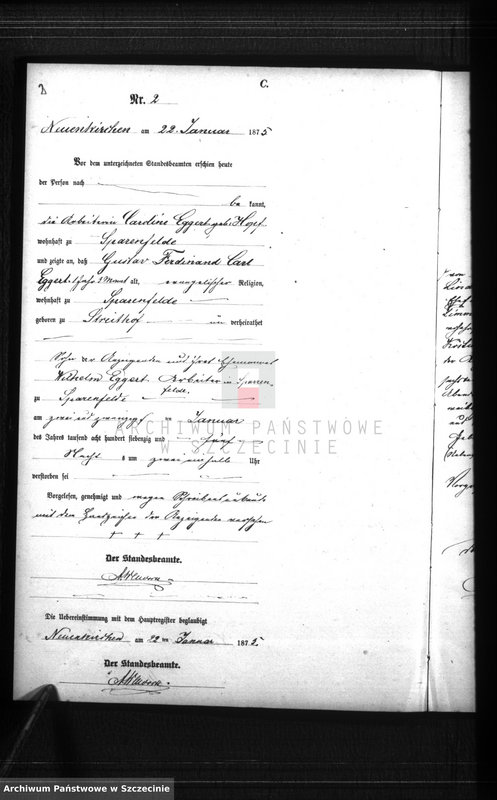 2
C.
Nr. 2
Neuenkirchen am 22. Januar 1875
Vor dem unterzeichneten Standesbeamten erschien heute
der Person nach
be kannt,
die Arbeiterin Caroline Eggert geb. Hopf
wohnhaft zu Sparenfelde
und zeigte an, daß Gustav Ferdinand Carl
Eggert, 1 Jahr Monat alt, evangelischer Religion,
wohnhaft zu Sparenfelde
geboren zu Streithof un verheirathet
Sohn der Anzeigenden und ihres Ehemannes
Wilhelm Eggert Arbeiter in Sparen-
felde
zu Sparenfelde
am zwei und zwanzigsten Januar
des Jahres tausend acht hundert siebenzig und fünf
Nachts um zwei einhalb Uhr
verstorben sei
Vorgelesen, genehmigt und wegen Schreibensunkunde
mit dem Handzeichen der Anzeigenden versehen
+ + +
Der Standesbeamte.
Die Uebereinstimmung mit dem Hauptregister beglaubigt
Neuenkirchen am 22ten Januar 1875.
Der Standesbeamte.
ARCHIWUM PAŃSTWOWE
W SZCZECINIE
Archiwum Państwowe w Szczecinie